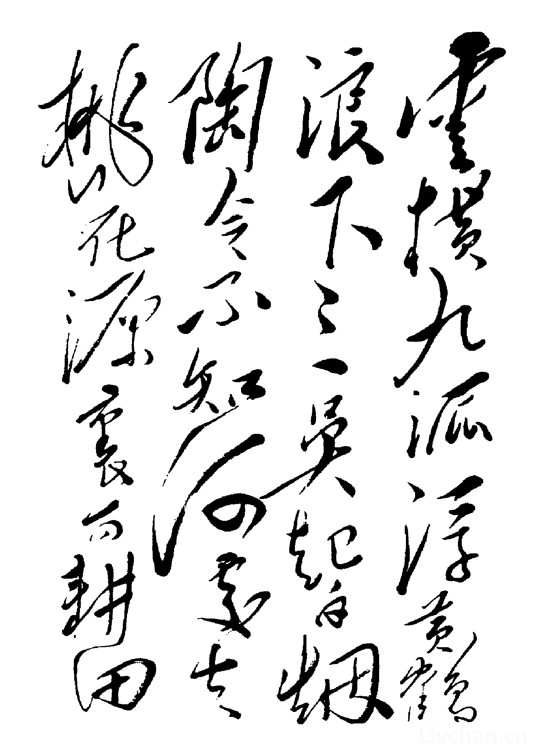 雲横九派浮黄鶴
浪下三吴起白烟
陶令不知何處去
桃花源裏可耕田
Livchan.cn